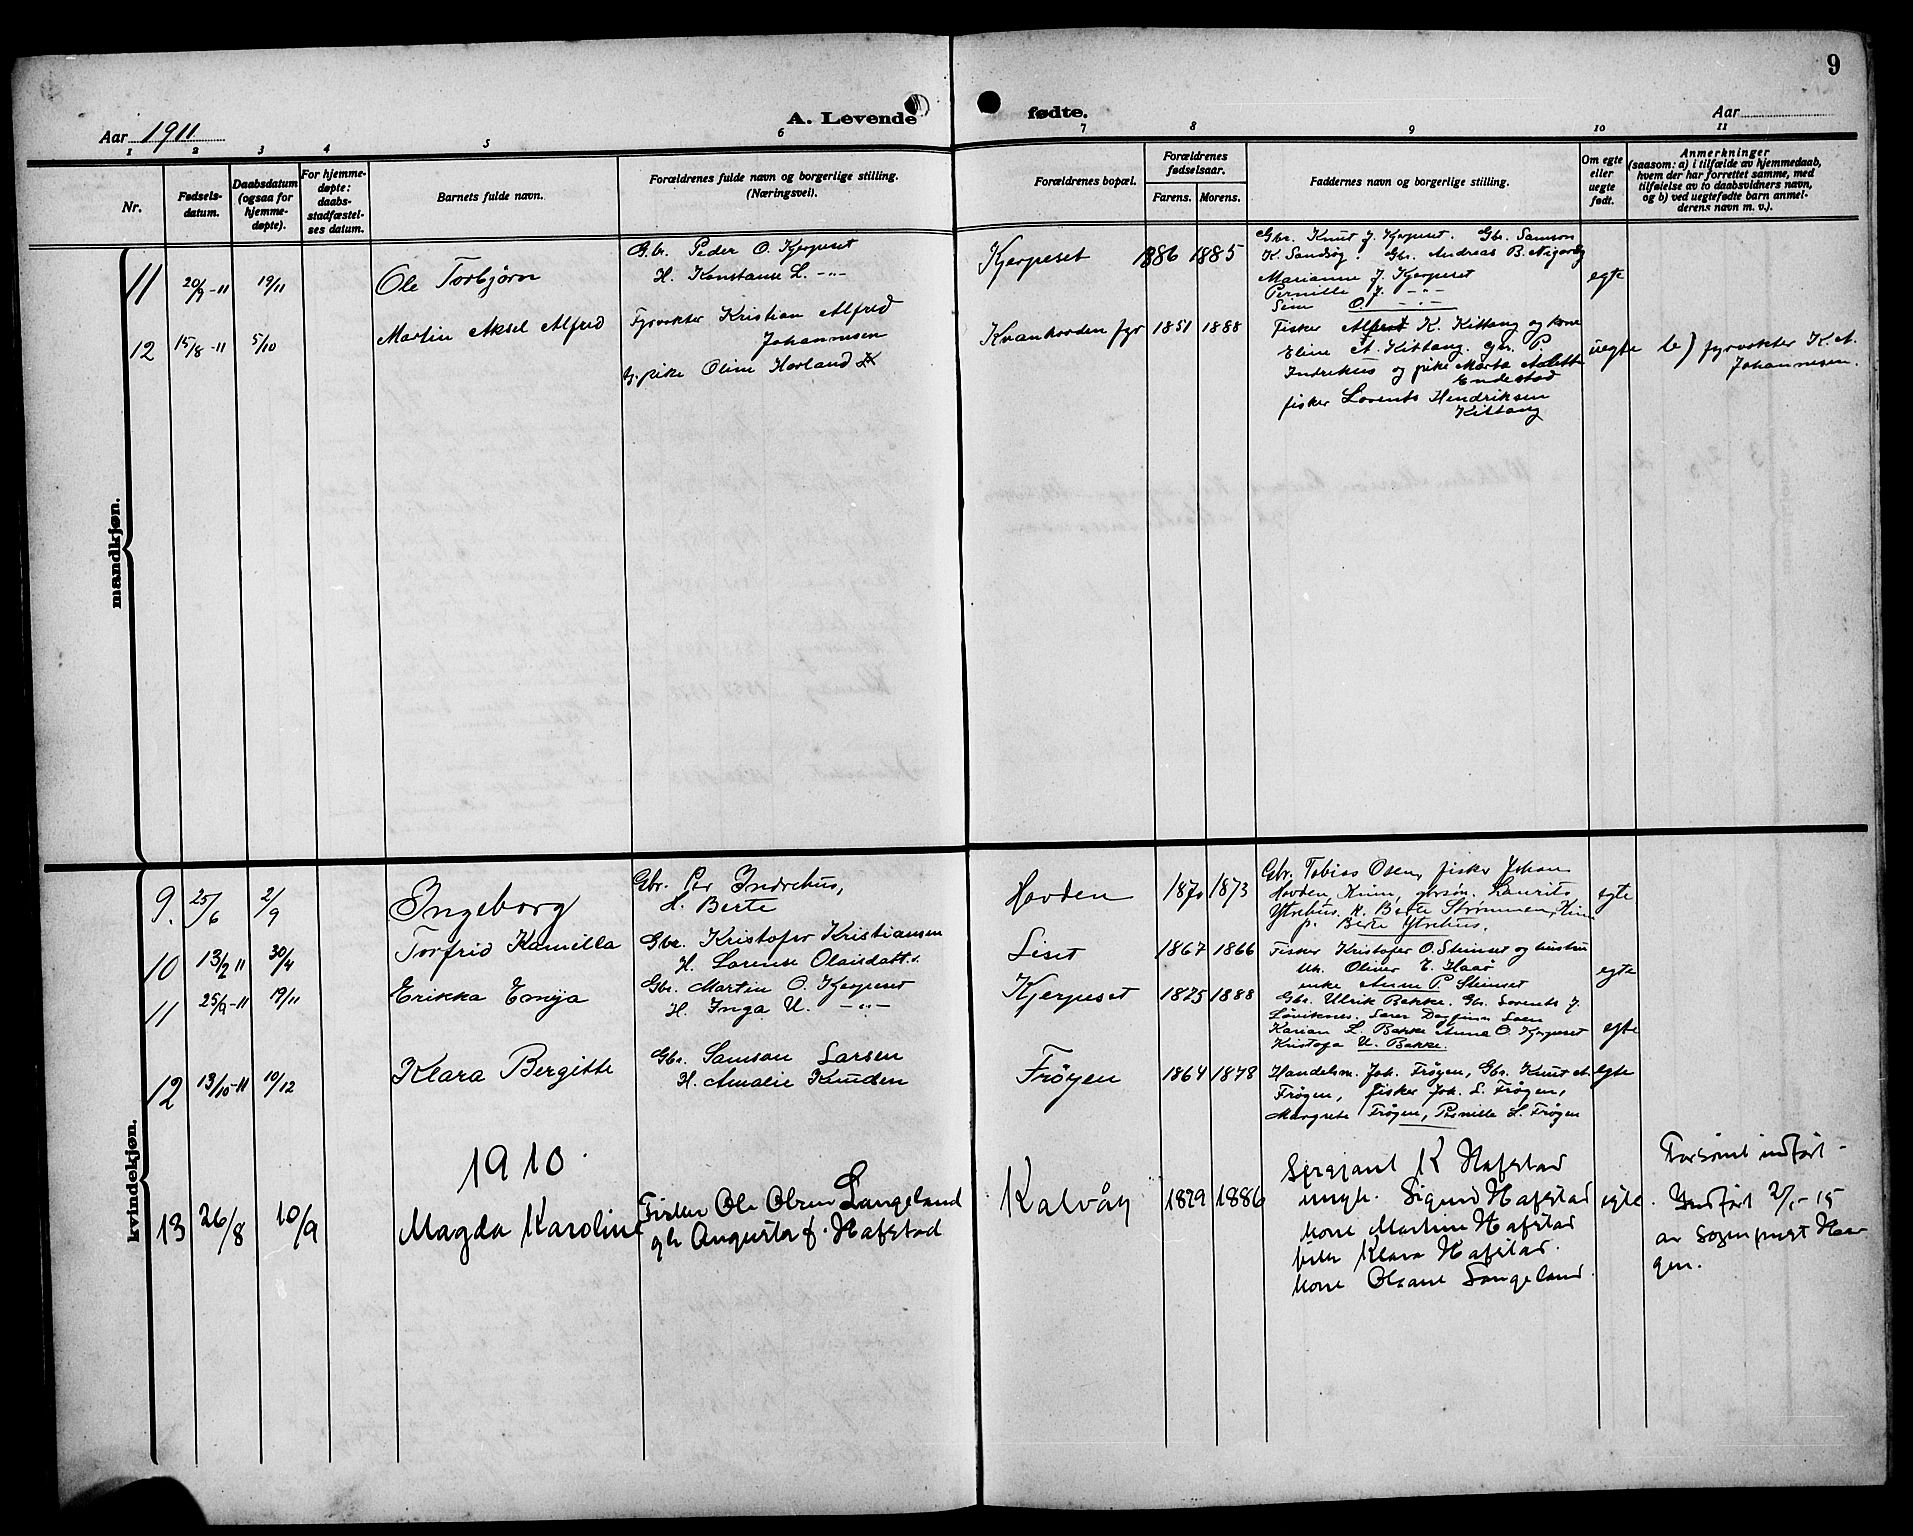 9
Aar 1911
A. Levende
fødte.
Aar
1 2 3 4 5 6 7 8 9 10 11
Nr.
Fødsels-
datum.
Daabsdatum
(ogsaa for
hjemme-
døpte).
For hjemme-
døpte:
daabs-
stadfæstel-
ses datum.
Barnets fulde navn.
Forældrenes fulde navn og borgerlige stilling.
(Næringsvei).
Forældrenes bopæl.
Forældrenes
fødselsaar.
Farens. Morens.
Faddernes navn og borgerlige stilling.
Om egte
eller
uegte
født.
Anmerkninger
(saasom: a) i tilfælde av hjemmedaab,
hvem der har forrettet samme, med
tilføielse av to daabsvidners navn,
og b) ved uegtefødte barn anmel-
derens navn m. v.).
mandkjøn.
11 20/9-11 19/11 Ole Torbjørn
Gbr. Peder O. Kjerpeset
H. Konstanse L. -"-
Kjerpeset 1886 1885
Gbr. Knut J. Kjerpeset. Gbr. Samson
K. Sandsøy. Gbr. Andreas B.
Marianne J. Kjerpeset
Pernille J. -"-
O. -"-
egte
12 15/8-11 5/10 Martin Aksel Alfred
Fyrvokter Kristian Alfred
Johannesen
pike Oline Horland
Kvanhovden fyr 1851 1888
Fisker Alfred K. Kittang og kone
Eline A. Kittang. gbr. P.
Indrehus og pike Marta
Endestad
fisker Lorents Hendriksen
Kittang
uegte
b) fyrvokter K. A.
Johannesen.
kvindekjøn.
9. 25/6 2/9 Ingeborg
Gbr. Per Indrehus,
H. Berte
Hovden 1870 1873
Gbr. Tobias Osen, fisker Johan
Hovden, Kinn, gbrsøn. Laurits
Ytrehus. k. Berte Strømmen, Kinn
p. Berte Ytrehus.
egte
10 13/2 11 30/4 Torfrid Kamilla
Gbr. Kristofer Kristiansen
H. Lorense Olaisdatt.
Liset 1867 1866
Fisker Kristofer O. Steinset og hustru
Uk. Oliver E. Haaø
enke Anne P. Steinset
egte
11 25/9-11 19/11 Erikka Enya
Gbr. Martin O. Kjerpeset
H. Inga U. -"-
Kjerpeset 1875 1888
Gbr. Ulrik Bakke. Gbr. Lorents J.
Løviknes. Dagfinn
L. Bakke Anna O. Kjerpeset
Kristofa U. Bakke.
egte
12 13/10-11 10/12 Klara Bergitte
Gbr. Samson Larsen
H. Amalie Knuden
Frøyen 1864 1878
Handelsm. Joh. Frøyen, Gbr. Knut A.
Frøyen, fisker Joh. L. Frøyen,
Margrete Frøyen, Pernille L. Frøyen
egte
1910.
13 26/8 10/9 Magda Karoline
Fisker Ole Olsen Langeland
gh Augusta f. Hafstad
Kalvåg 1879 1886
Sersjant K Hafstad
ungk. Sigurd Hafstad
kone Martine Hafstad
pike Klara Hafstad.
kone Olsane Langeland.
egte
Forsømt indført -
Indført 2/1-15
av Sogneprest Hau-
gen.